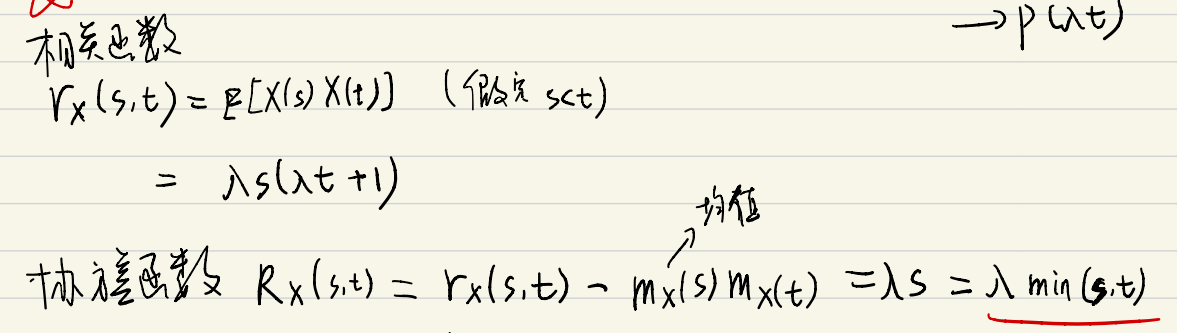 →P(λt)
相关函数
r_X(s,t) = E[X(s)X(t)] (假定 s<t)
= λs(λt+1)
均值
协方差函数 R_X(s,t) = r_X(s,t) - m_X(s) m_X(t) = λs = λ min(s,t)